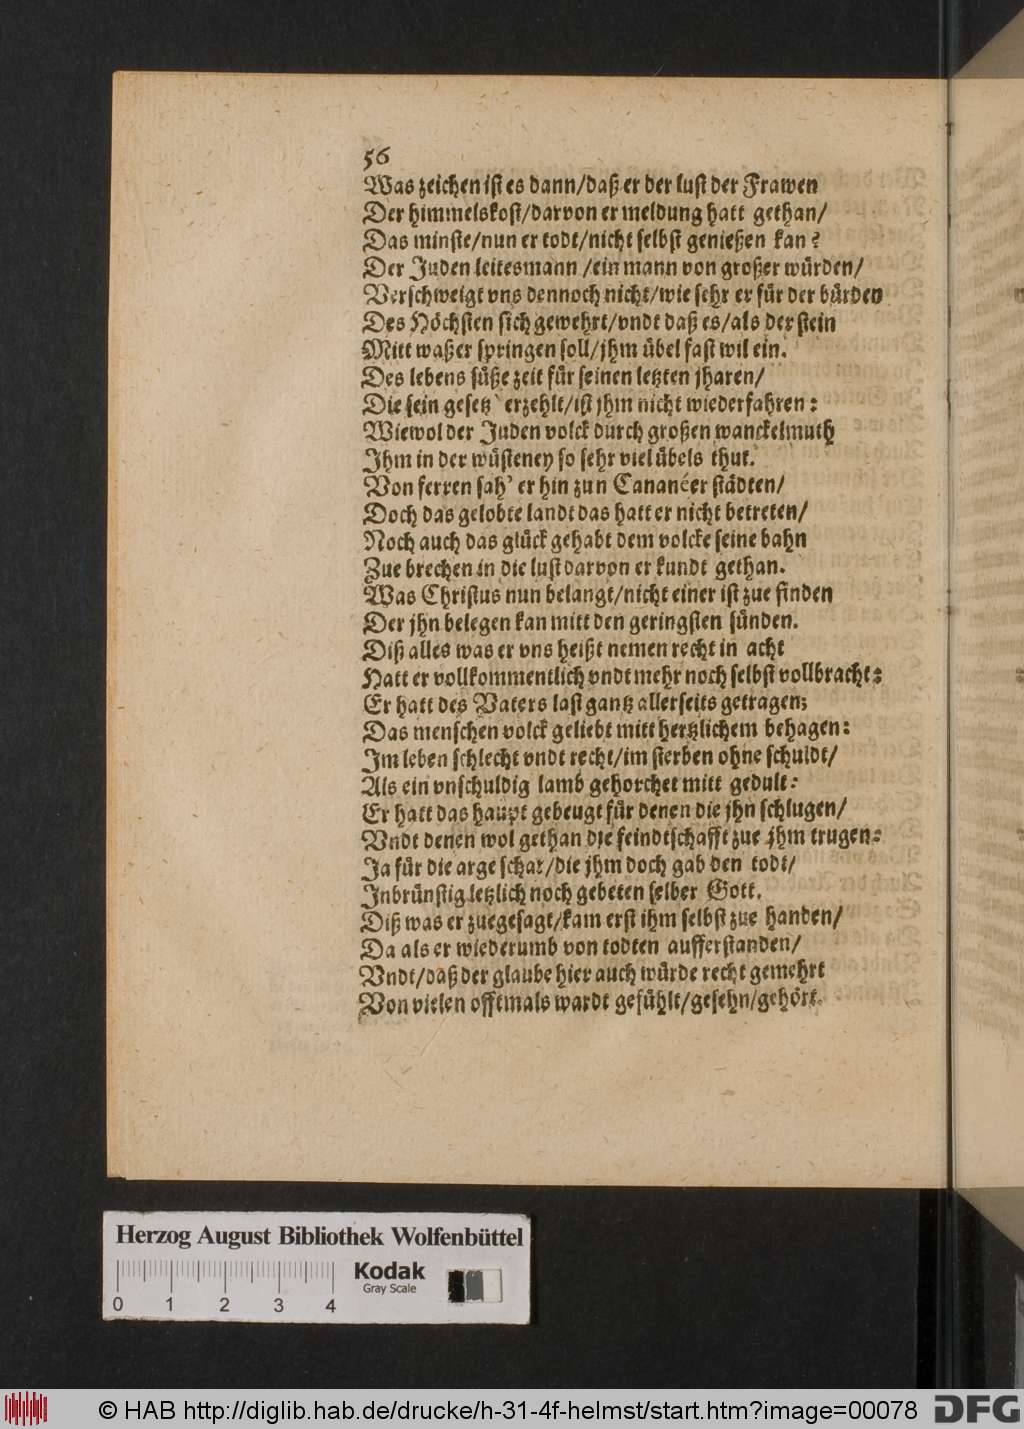 56
Was zeichen ist es dann/daß er der lust der Frawen
Der himmelskost/darvon er meldung hatt gethan/
Das minste/nun er todt/nicht selbst genießen kan?
Der Juden leitesmann /ein mann von großer würden/
Verschweigt vns dennoch nicht/wie sehr er für der bürden
Des Höchsten sich gewehrt/vndt daß es/als der stein
Mitt waßer springen soll/jhm übel fast wil ein.
Des lebens süße zeit für seinen letzten jharen/
Die sein gesetz' erzehlt/ist jhm nicht wiederfahren:
Wiewol der Juden volck durch großen wanckelmuth
Ihm in der wüsteney so sehr viel übels thut.
Von ferren sah' er hin zun Cananéer städten/
Doch das gelobte landt das hatt er nicht betreten/
Noch auch das glück gehabt dem volcke seine bahn
Zue brechen in die lust darvon er kundt gethan.
Was Christus nun belangt/nicht einer ist zue finden
Der jhn belegen kan mitt den geringsten sünden.
Diß alles was er vns heißt nemen recht in acht
Hatt er vollkommentlich vndt mehr noch selbst vollbracht:
Er hatt des Vaters last gantz allerseits getragen;
Das menschen volck geliebt mitt hertzlichem behagen:
Im leben schlecht vndt recht/im sterben ohne schuldt/
Als ein vnschuldig lamb gehorchet mitt gedult:
Er hatt das haupt gebeugt für denen die jhn schlugen/
Vndt denen wol gethan die feindtschafft zue jhm trugen:
Ja für die arge schar/die jhm doch gab den todt/
Inbrünstig letzlich noch gebeten selber Gott.
Diß was er zuegesagt/kam erst ihm selbst zue handen/
Da als er wiederumb von todten aufferstanden/
Vndt/daß der glaube hier auch würde recht gemehrt
Von vielen offtmals wardt gefühlt/gesehn/gehört.
Herzog August Bibliothek Wolfenbüttel
Kodak
Gray Scale
0 1 2 3 4
© HAB http://diglib.hab.de/drucke/h-31-4f-helmst/start.htm?image=00078
DFG